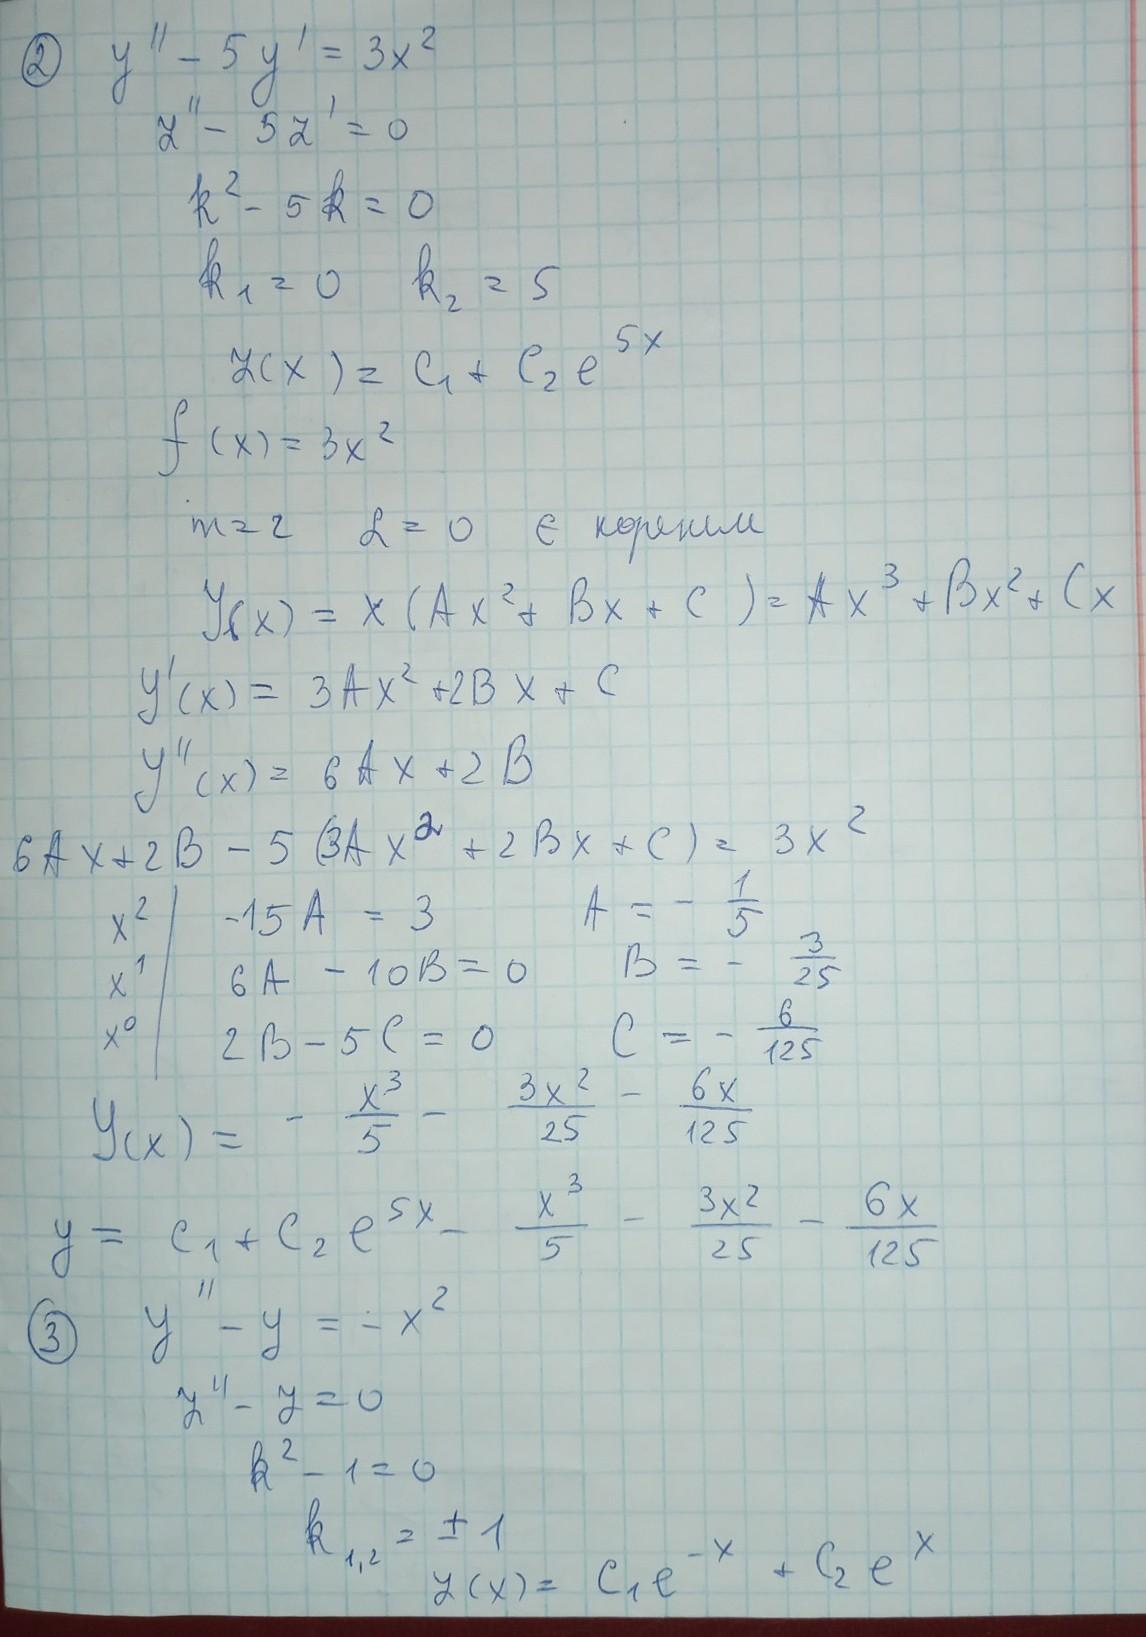 ② y'' - 5y' = 3x²
z'' - 5z' = 0
k² - 5k = 0
k₁ = 0 k₂ = 5
z(x) = C₁ + C₂ e^{5x}
f(x) = 3x²
m = 2 α = 0 є коренем
Y(x) = x(Ax² + Bx + C) = Ax³ + Bx² + Cx
Y'(x) = 3Ax² + 2Bx + C
Y''(x) = 6Ax + 2B
6Ax + 2B - 5(3Ax² + 2Bx + C) = 3x²
x² | -15A = 3 A = - 1/5
x¹ | 6A - 10B = 0 B = - 3/25
x⁰ | 2B - 5C = 0 C = - 6/125
Y(x) = - x³/5 - 3x²/25 - 6x/125
y = C₁ + C₂ e^{5x} - x³/5 - 3x²/25 - 6x/125
③ y'' - y = -x²
z'' - z = 0
k² - 1 = 0
k₁,₂ = ± 1
z(x) = C₁e^{-x} + C₂e^{x}